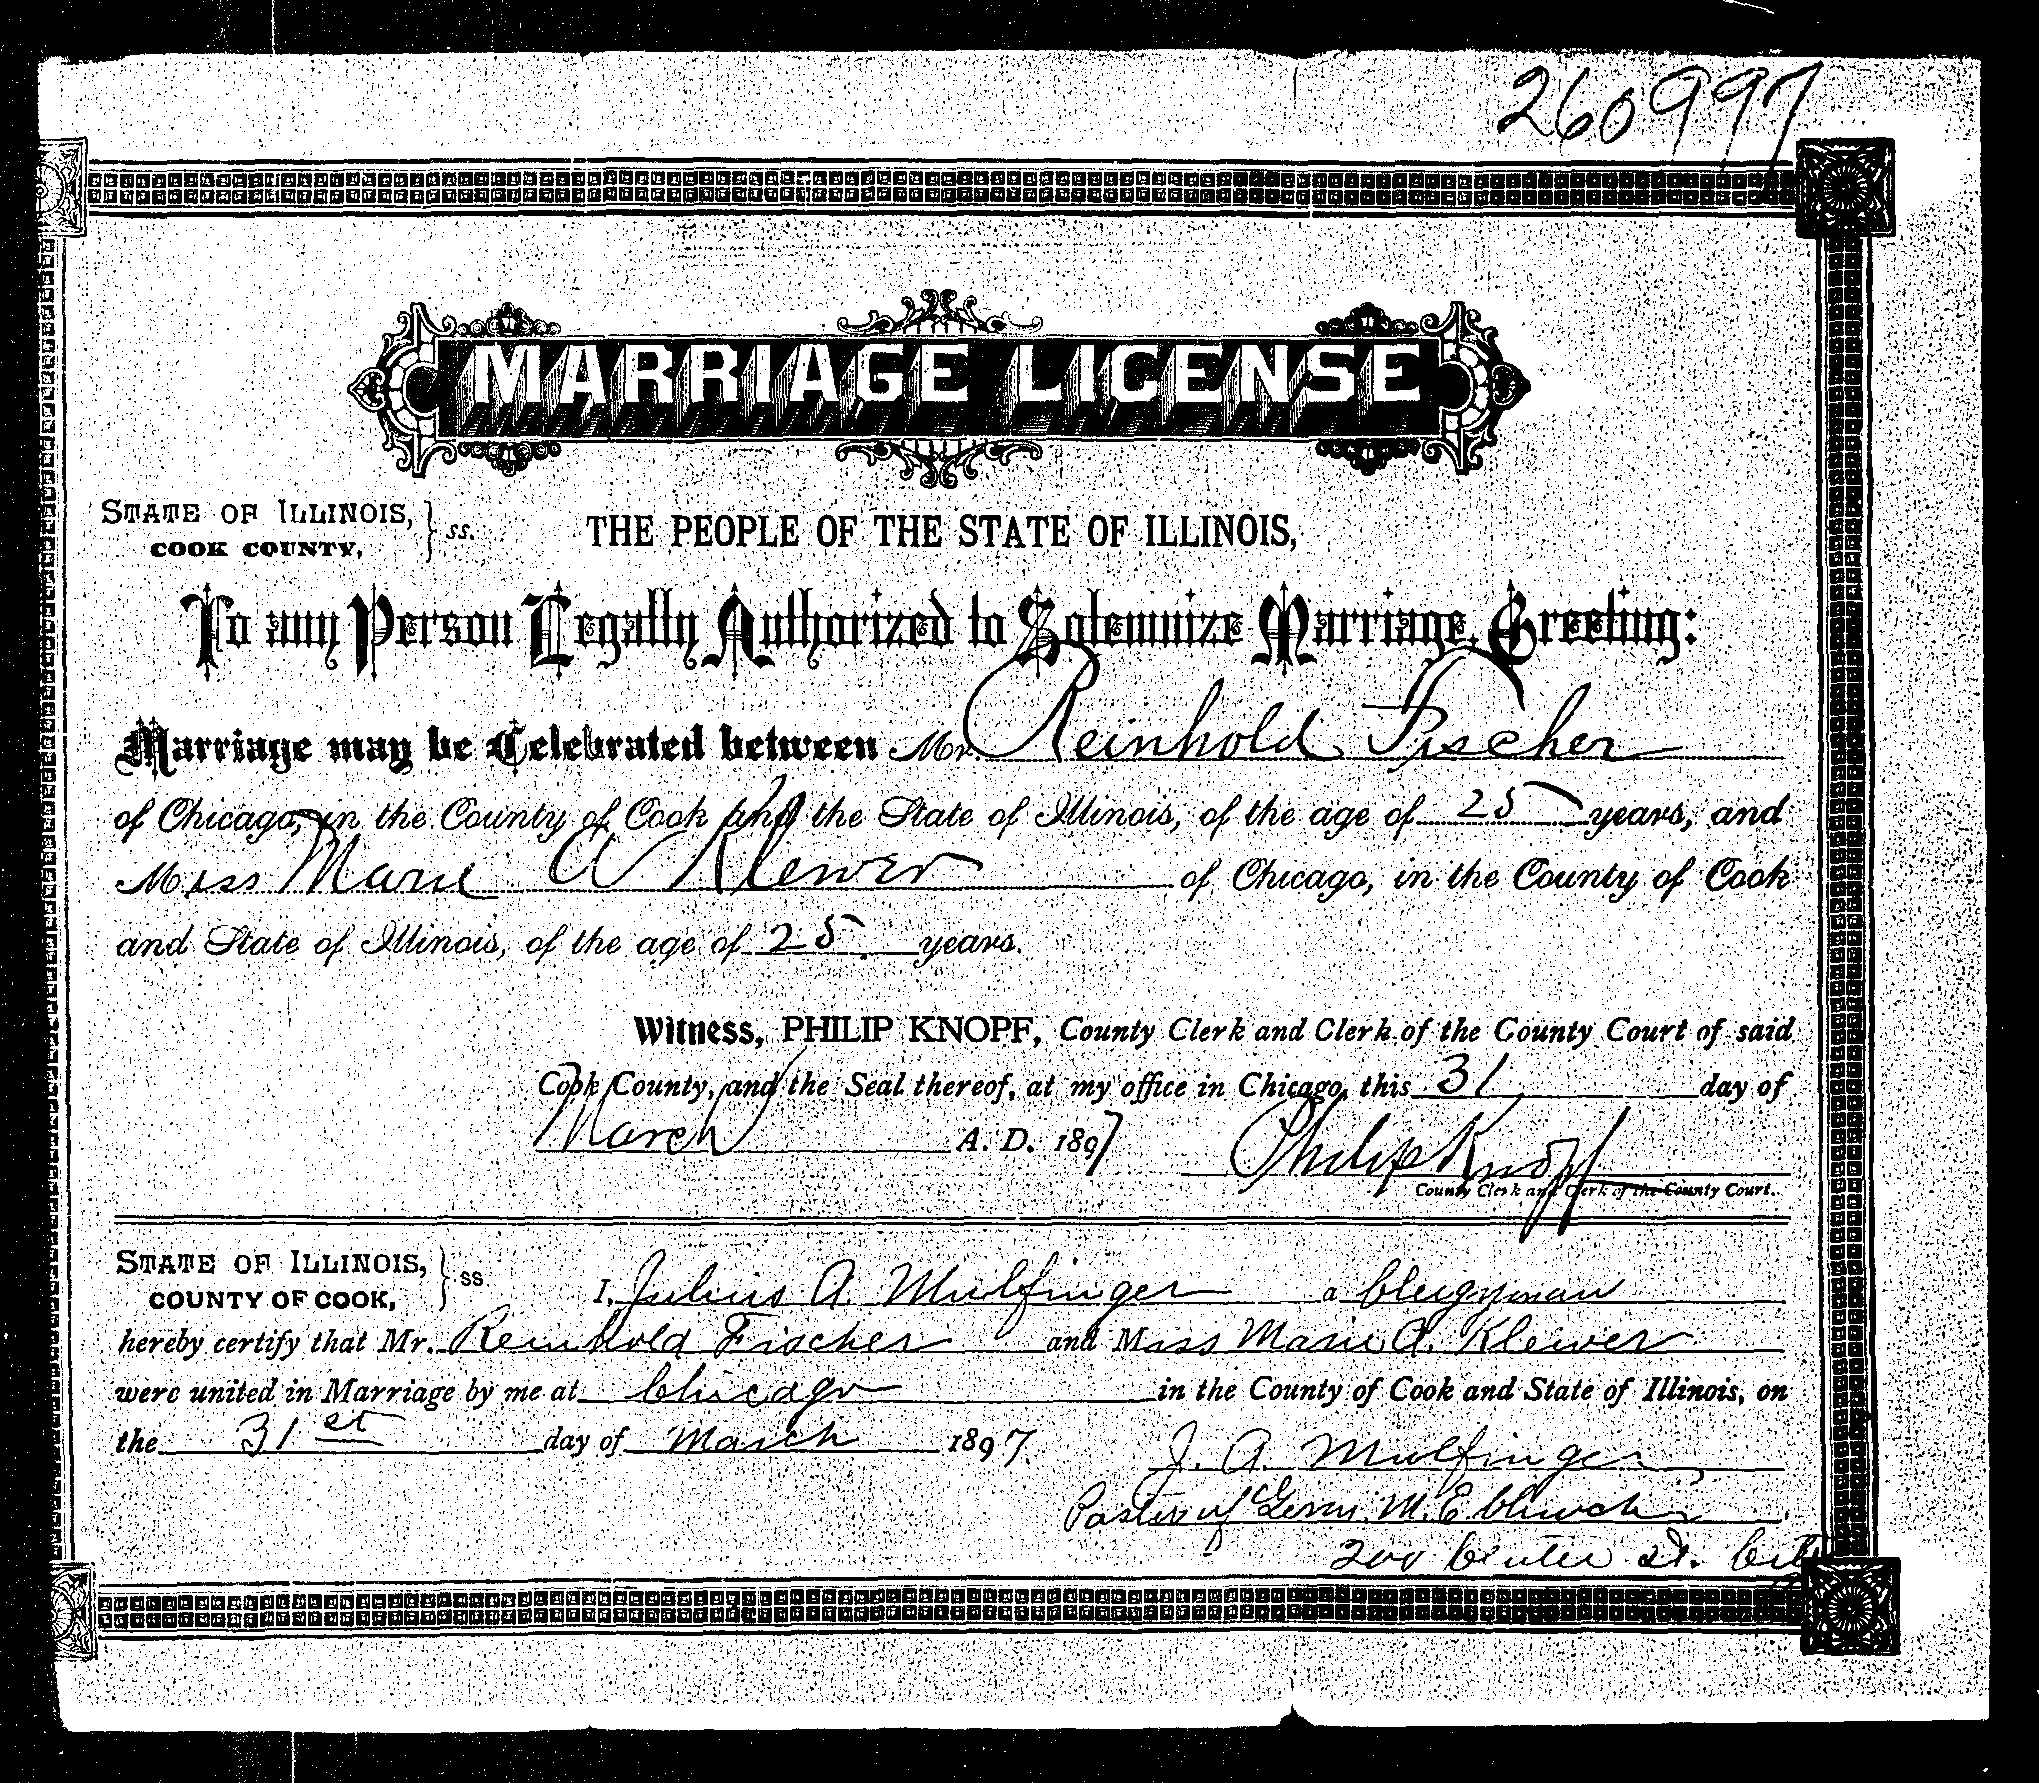 260997
MARRIAGE LICENSE
STATE OF ILLINOIS,
COOK COUNTY, } ss.
THE PEOPLE OF THE STATE OF ILLINOIS,
To any Person Legally Authorized to Solemnize Marriage, Greeting:
Marriage may be Celebrated between Mr. Reinhold Fischer
of Chicago, in the County of Cook and the State of Illinois, of the age of 25 years, and
Miss Marie A Klewer of Chicago, in the County of Cook
and State of Illinois, of the age of 25 years.
Witness, PHILIP KNOPF, County Clerk and Clerk of the County Court of said
Cook County, and the Seal thereof, at my office in Chicago, this 31 day of
March A. D. 1897 Philip Knopf
County Clerk and Clerk of the County Court.
STATE OF ILLINOIS,
COUNTY OF COOK, } ss
I, Julius A. Mulfinger a Clergyman
hereby certify that Mr. Reinhold Fischer and Miss Marie A. Klewer
were united in Marriage by me at Chicago in the County of Cook and State of Illinois, on
the 31st day of March 1897. J. A. Mulfinger,
Pastor of Germ. M. E Church
200 Center St. City